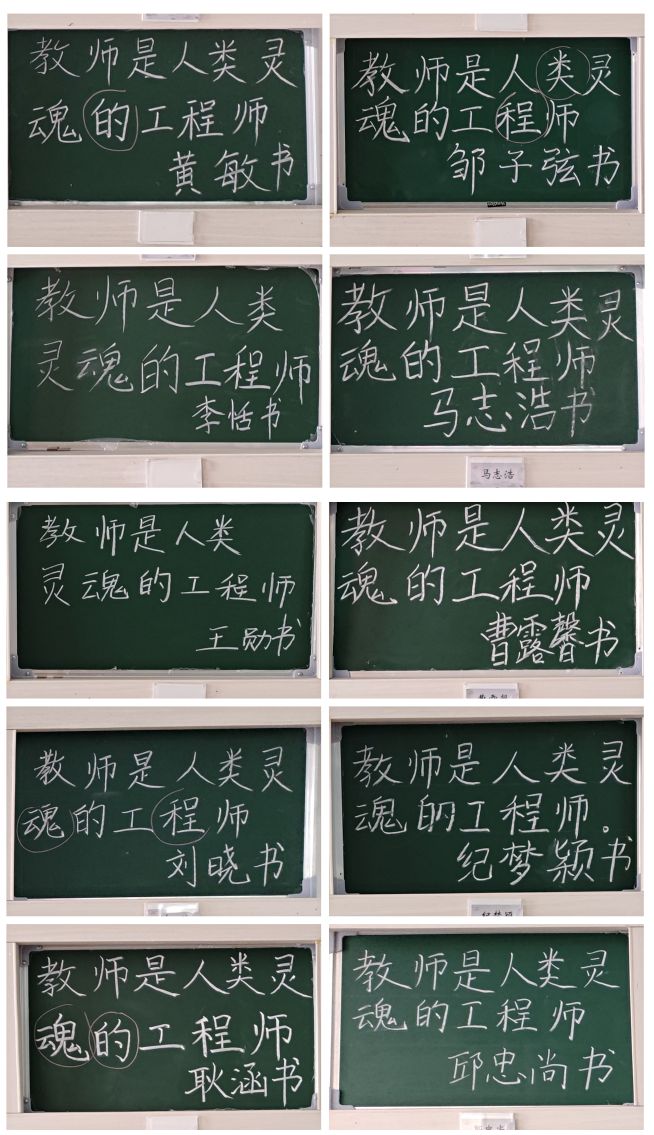 教师是人类灵
魂的工程师
黄敏书
教师是人类灵
魂的工程师
邹子弦书
教师是人类
灵魂的工程师
李恬书
教师是人类灵
魂的工程师
马志浩书
马志浩
教师是人类
灵魂的工程师
王勋书
教师是人类灵
魂的工程师
曹露馨书
教师是人类灵
魂的工程师
刘晓书
教师是人类灵
魂的工程师。
纪梦颖书
纪梦颖
教师是人类灵
魂的工程师
耿涵书
教师是人类灵
魂的工程师
邱忠尚书